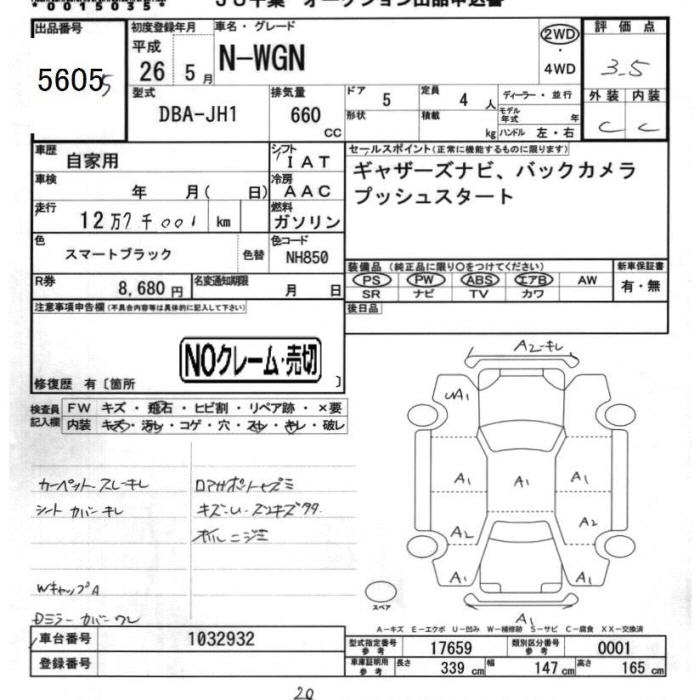 *0015035*
JU千葉 オークション出品申込書
出品番号 初度登録年月 車名・グレード 2WD・4WD 評価点
5605 5 平成 26 5月 N-WGN 3.5
型式 DBA-JH1 排気量 660 CC
ドア 5 定員 4 人 ディーラー・並行 外装 内装
形状 積載 kg モデル年式 年 ハンドル 左・右 C C
車歴 自家用 シフト IAT
セールスポイント(正常に機能するものに限ります)
車検 年 月( 日) 冷房 AAC
ギャザーズナビ、バックカメラ
プッシュスタート
走行 12万7千001 km 燃料 ガソリン
色 スマートブラック 色替 色コード NH850
装備品(純正品に限り○をつけてください) 新車保証書
PS PW ABS エアB AW 有・無
SR ナビ TV カワ
R券 8,680円 名変通知期限 月 日
後日品
注意事項申告欄(不具合内容等は具体的に記入して下さい)
NOクレーム・売切
修復歴 有〔箇所 〕
検査員記入欄 FW キズ・飛石・ヒビ割・リペア跡・×要
内装 キズ・汚れ・コゲ・穴・スレ・キレ・破レ
カーペット スレ・キレ
シート カバー キレ
オイルニジミ
WキャップA
Dミラーカバーワレ
A2-キレ
UA1 A1
A1 A1 A1
A2 A2
A1 A1
A1
スペア
A-キズ E-エクボ U-凹み W-補修跡 S-サビ C-腐食 XX-交換済
車台番号 1032932
型式指定番号 参考 17659 類別区分番号 参考 0001
登録番号
車庫証明用 参考 長さ 339 cm 幅 147 cm 高さ 165 cm
20